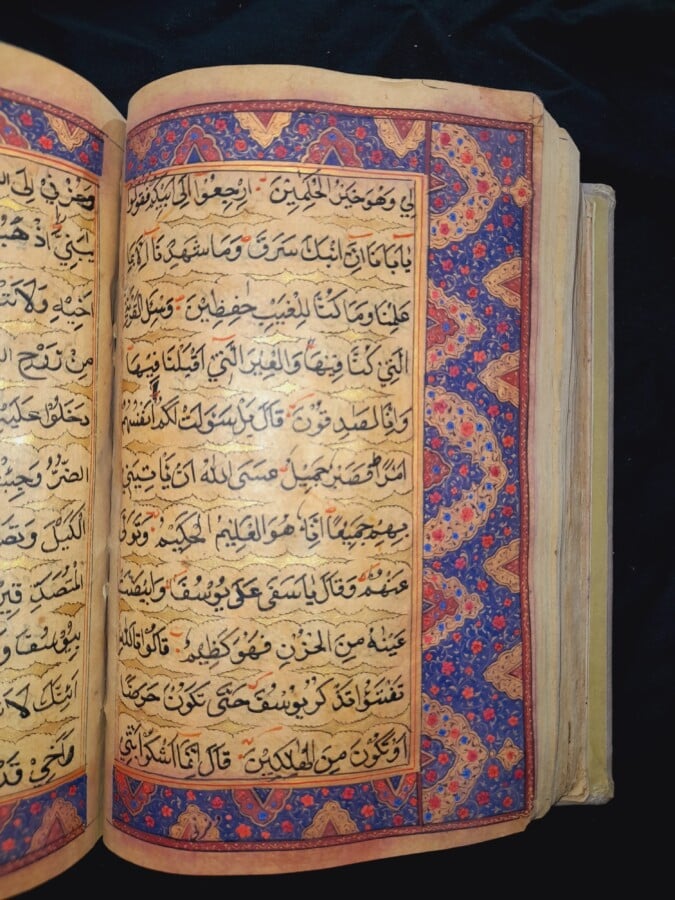 لِي وَهُوَ خَيْرُ الْحٰكِمِينَ ارْجِعُوا اِلٰى اَبِيكُمْ فَقُولُوا
يَا اَبَانَا اِنَّ ابْنَكَ سَرَقَ وَمَا شَهِدْنَا اِلَّا بِمَا
عَلِمْنَا وَمَا كُنَّا لِلْغَيْبِ حٰفِظِينَ وَسْئَلِ الْقَرْيَةَ
الَّتِي كُنَّا فِيهَا وَالْعِيرَ الَّتِي اَقْبَلْنَا فِيهَا
وَاِنَّا لَصٰدِقُونَ قَالَ بَلْ سَوَّلَتْ لَكُمْ اَنْفُسُكُمْ
اَمْرًا فَصَبْرٌ جَمِيلٌ عَسَى اللّٰهُ اَنْ يَاْتِيَنِي
بِهِمْ جَمِيعًا اِنَّهُ هُوَ الْعَلِيمُ الْحَكِيمُ وَتَوَلّٰى
عَنْهُمْ وَقَالَ يَا اَسَفٰى عَلٰى يُوسُفَ وَابْيَضَّتْ
عَيْنٰهُ مِنَ الْحُزْنِ فَهُوَ كَظِيمٌ قَالُوا تَاللّٰهِ
تَفْتَؤُا تَذْكُرُ يُوسُفَ حَتّٰى تَكُونَ حَرَضًا
اَوْ تَكُونَ مِنَ الْهٰلِكِينَ قَالَ اِنَّمَا اَشْكُوا بَثِّي
وَحُزْنِي اِلَى
يٰبَنِيَّ اذْهَبُوا
اَخِيهِ وَلَا
مِنْ رَوْحِ
دَخَلُوا عَلَيْهِ
الضُّرُّ وَجِئْنَا
الْكَيْلَ
الْمُتَصَدِّقِينَ
بِيُوسُفَ
اَئِنَّكَ
وَاَخِي قَدْ